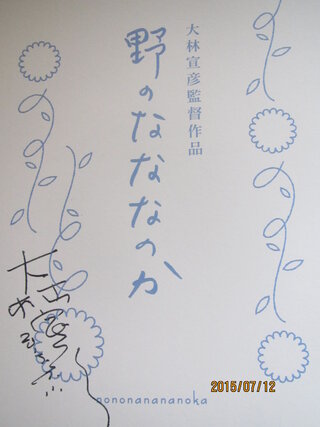 大林宣彦監督作品
野のなななのか
nononanananoka
2015/07/12